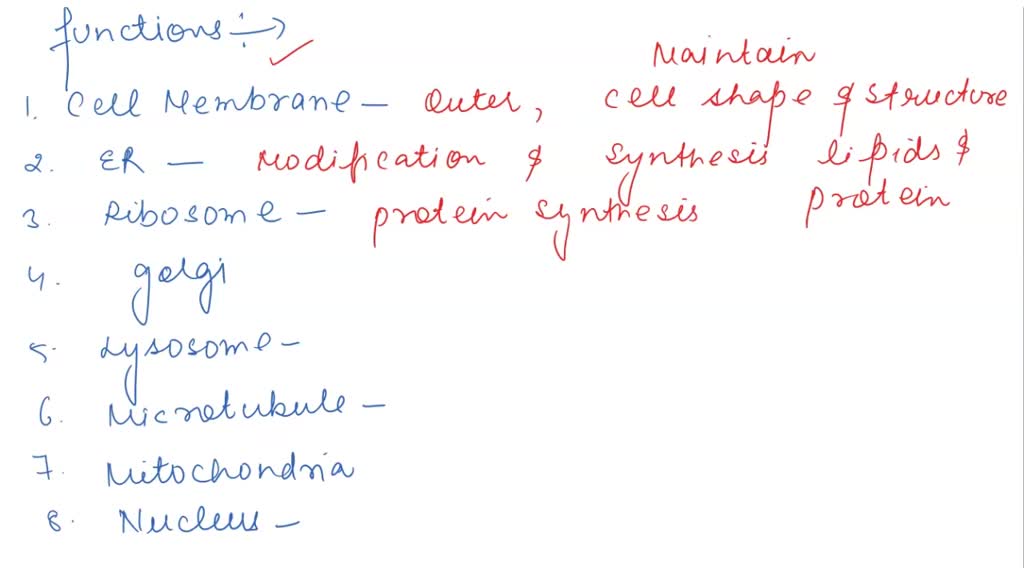 functions :->
Maintain
1. Cell Membrane - Outer, cell shape & structure
2. ER - Modification & synthesis lipids &
3. Ribosome - protein synthesis protein
4. golgi
5. Lysosome -
6. Microtubule -
7. Mitochondria
8. Nucleus -